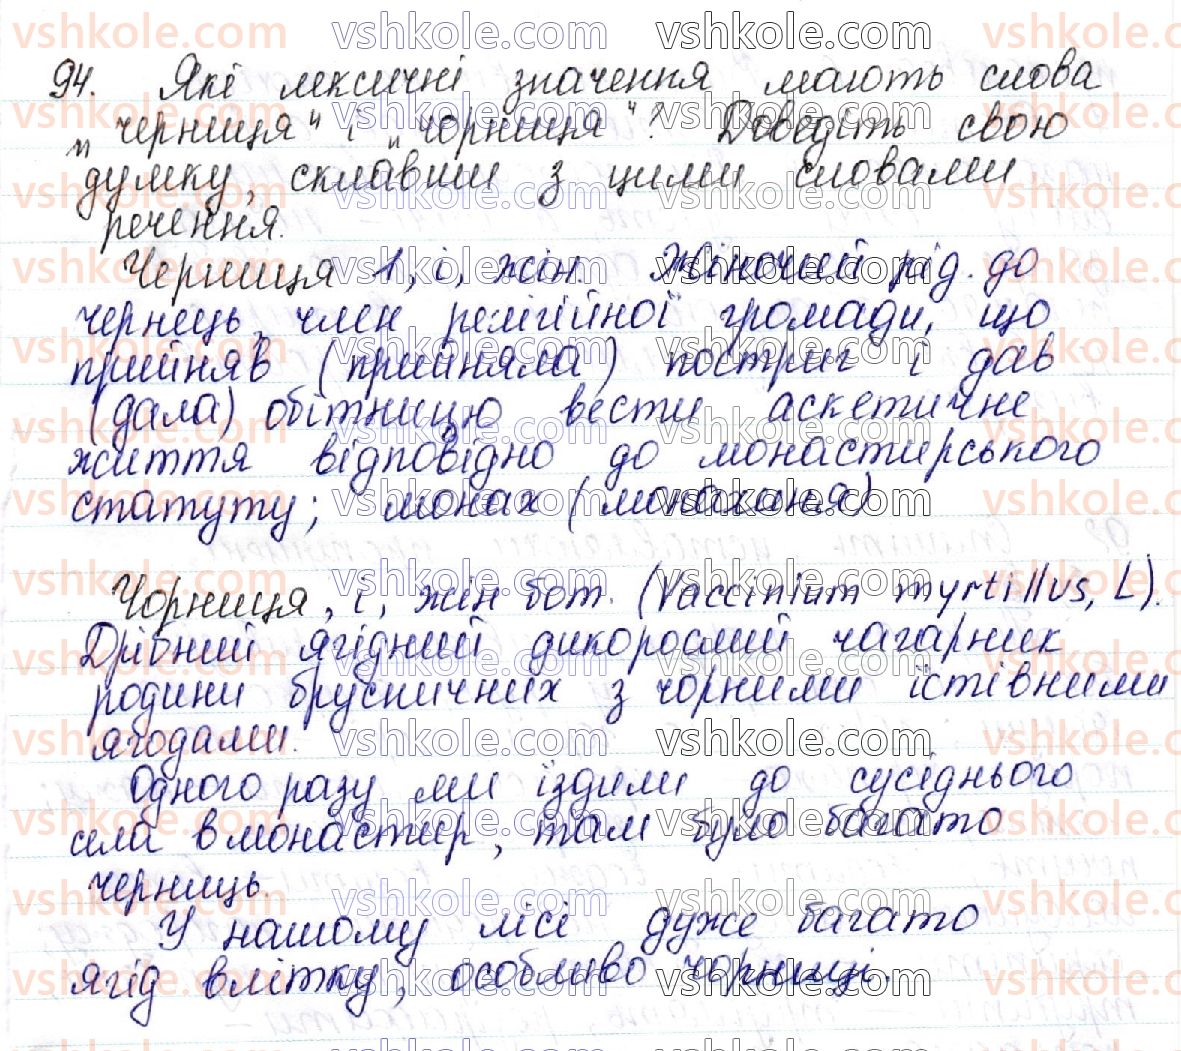 94. Які лексичні значення мають слова
„черниця" і „чорниця"? Доведіть свою
думку, склавши з цими словами
речення.
Черниця 1, і, жін. Жіночий рід. до
чернець, член релігійної громади, що
прийняв (прийняла) постриг і дав
(дала) обітницю вести аскетичне
життя відповідно до монастирського
статуту; монах (монахиня)
Чорниця, і, жін бот. (Vaccinium myrtillus, L).
Дрібний ягідний дикорослий чагарник
родини брусничних з чорними їстівними
ягодами.
Одного разу ми їздили до сусіднього
села в монастир, там було багато
черниць.
У нашому лісі дуже багато
ягід влітку, особливо чорниці.